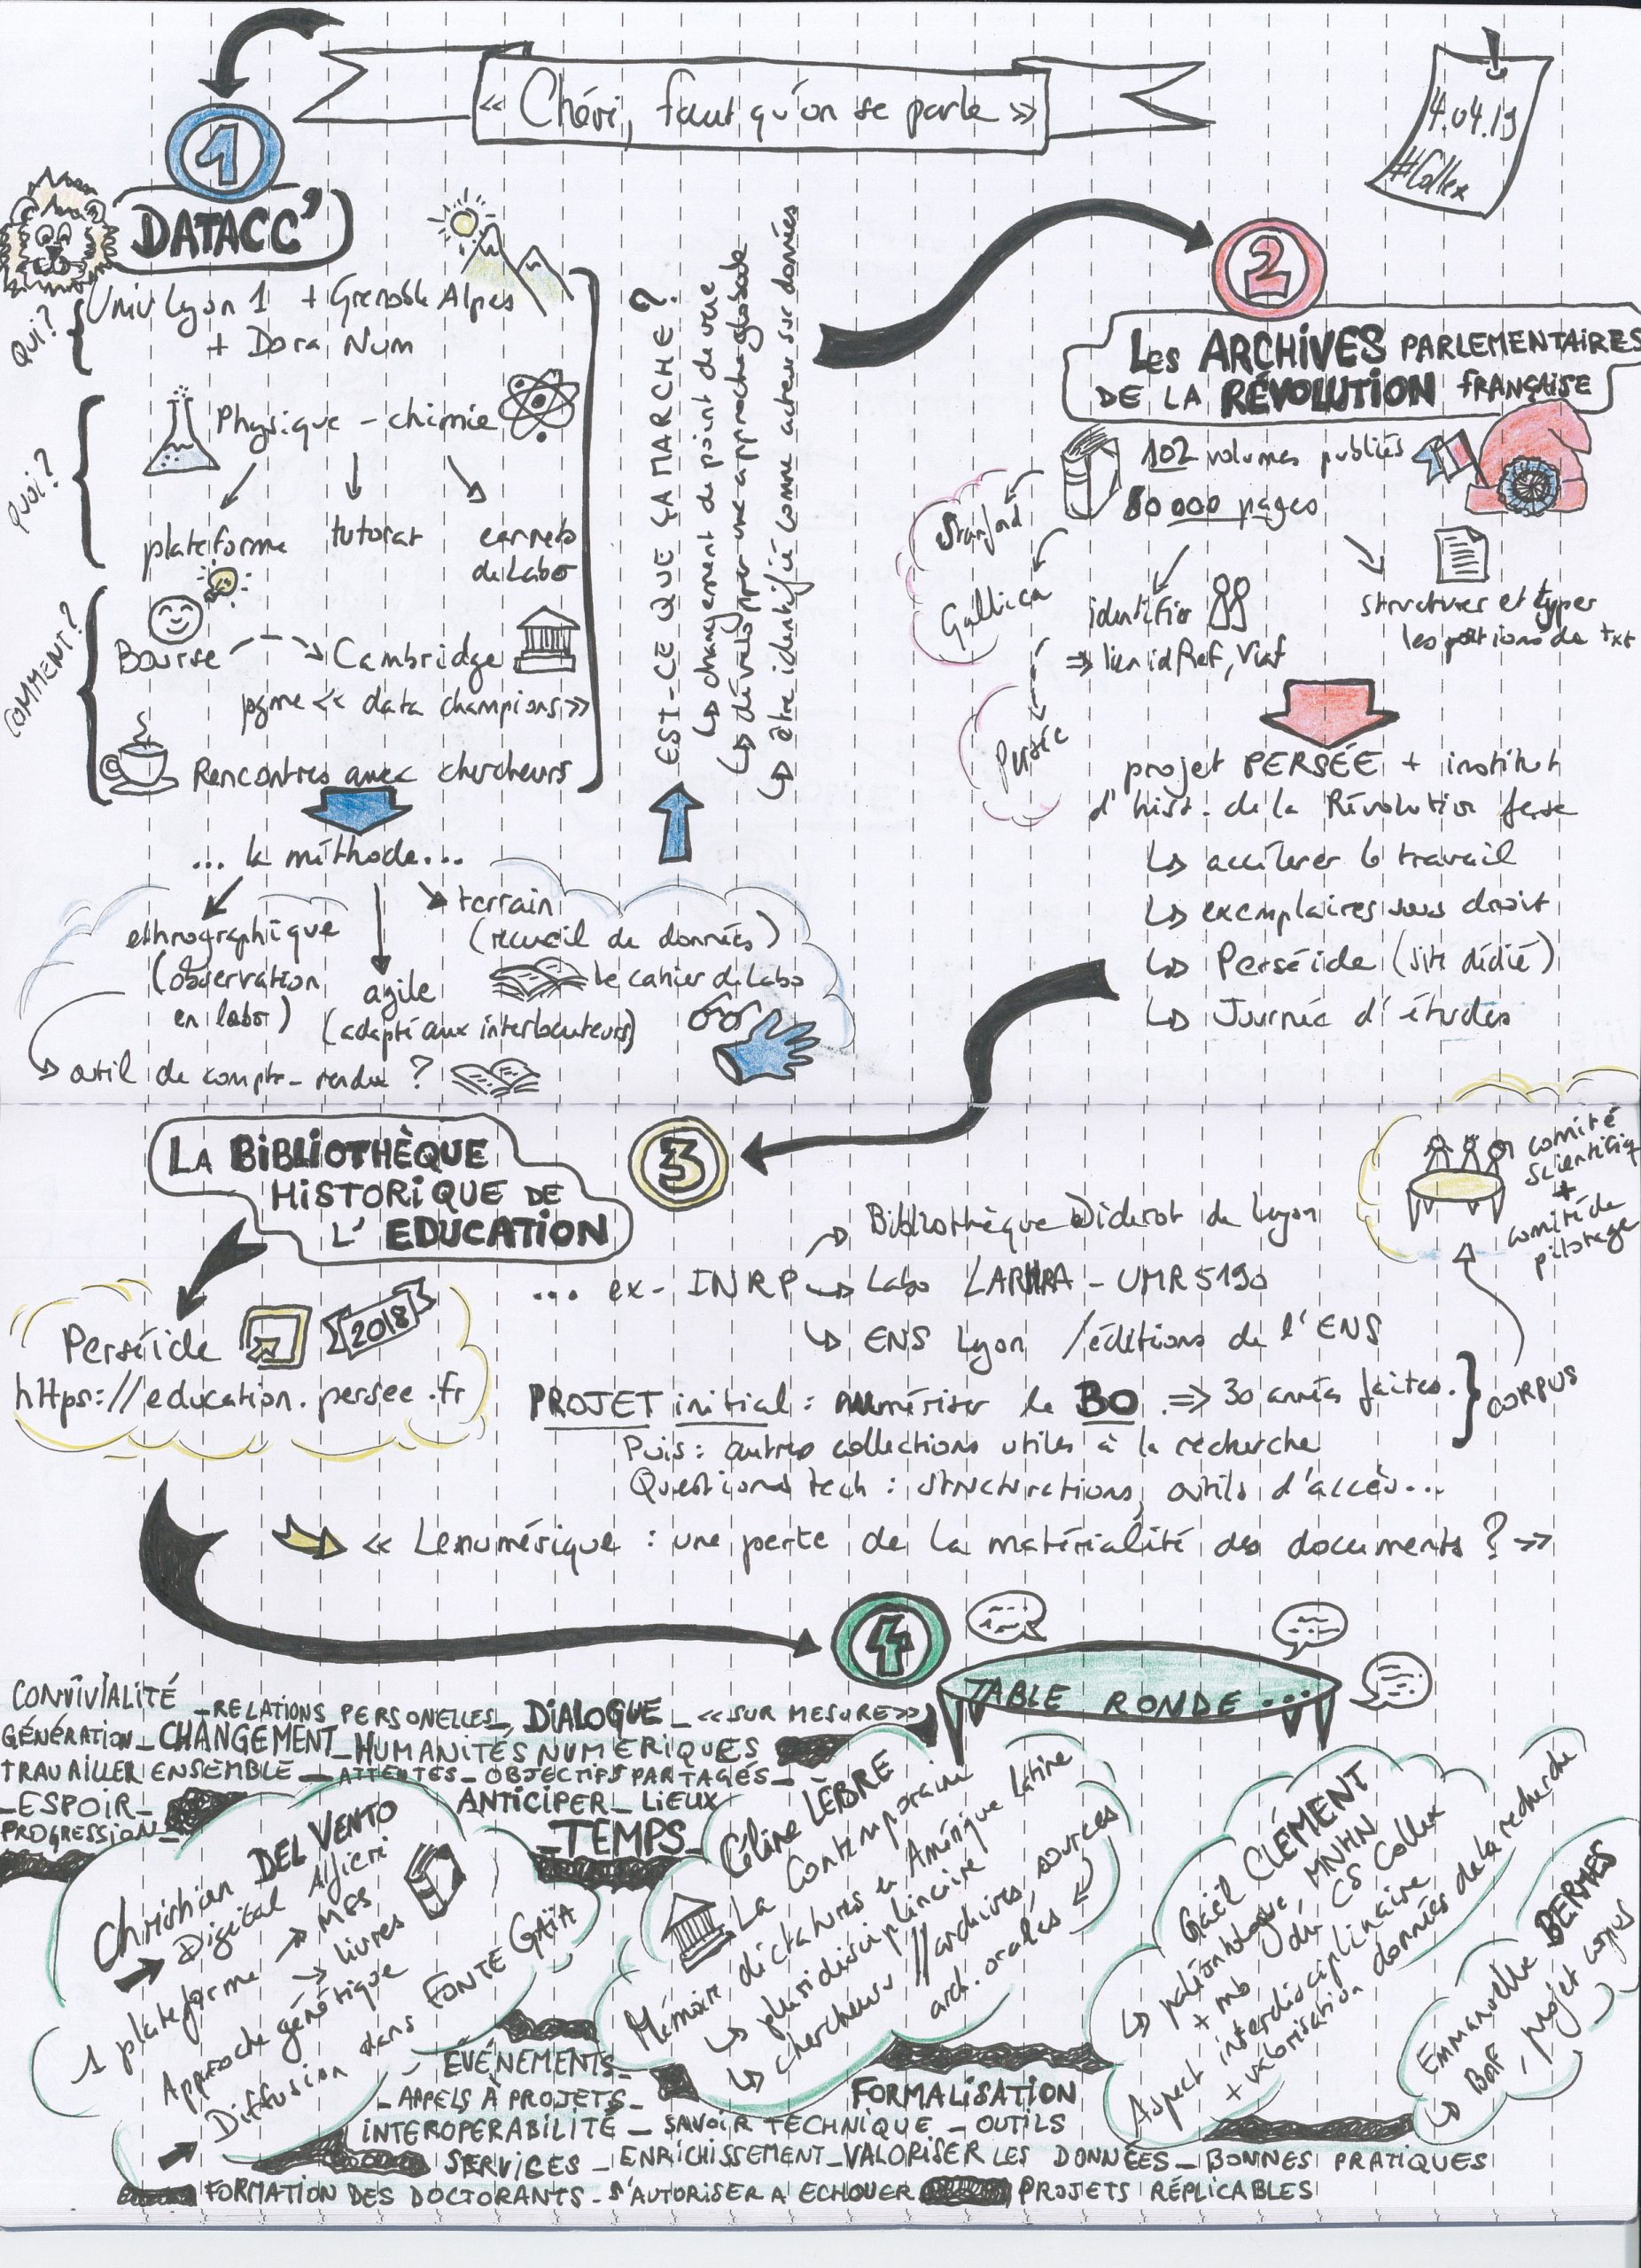 « Chéri, faut qu'on se parle »
4.04.19
#Collex
1
DATACC'
QUI?
Univ Lyon 1 + Grenoble Alpes
+ Dora Num
QUOI?
Physique - chimie
plateforme
tutorat
carnets
de Labo
COMMENT?
Bourse
Cambridge
pgme << data champions >>
Rencontres avec chercheurs
... la méthode...
ethnographique
(observation
en labo)
agile
(adapté aux interlocuteurs)
terrain
(recueil de données)
le cahier de Labo
outil de compte-rendu ?
EST-CE QUE ÇA MARCHE ?
changement de point de vue
développer une approche globale
être identifié comme acteur sur données
2
Les ARCHIVES PARLEMENTAIRES
DE LA RÉVOLUTION FRANÇAISE
102 volumes publiés
80 000 pages
Stanford
Gallica
Persée
identifier
=> lien idRef, Viaf
structurer et typer
les portions de txt
projet PERSÉE + institut
d'hist. de la Révolution fçse
accélérer le travail
exemplaires sous droit
Perséide (site dédié)
Journée d'études
3
LA BIBLIOTHÈQUE
HISTORIQUE DE
L'EDUCATION
Perséide
2018
https://education.persee.fr
... ex- INRP
Bibliothèque Diderot de Lyon
Labo LARHRA - UMR 5190
ENS Lyon / éditions de l'ENS
comité
scientifiq
+
comité de
pilotage
PROJET initial : numériser le BO => 30 années faites.
Puis : autres collections utiles à la recherche
Questions tech : structurations, outils d'accès...
CORPUS
« Le numérique : une perte de la matérialité des documents ? »
4
TABLE RONDE...
CONVIVIALITÉ _ RELATIONS PERSONELLES _ DIALOGUE _ « SUR MESURE »
GÉNÉRATION _ CHANGEMENT _ HUMANITÉS NUMERIQUES
TRAVAILLER ENSEMBLE _ ATTENTES _ OBJECTIFS PARTAGÉS _
_ ESPOIR _
ANTICIPER _ LIEUX
PROGRESSION _
_ TEMPS _
Christian DEL VENTO
Digital Alfieri
1 plateforme -> MSS
-> livres
Approche génétique
Diffusion dans FONTE GAÏA
Céline LÈBRE
La Contemporaine
Mémoire dictatures en Amérique Latine
plusidisciplinaire
chercheurs // archives, sources
arch. orales
Gaël CLÉMENT
paléontologue, MNHN
+ mb du CS Collex
Aspect interdisciplinaire
+ valorisation données de la recherche
Emmanuelle BERMES
BnF, projet corpus
EVÉNEMENTS _
_ APPELS À PROJETS _
FORMALISATION
INTEROPERABILITÉ _ SAVOIR TECHNIQUE _ OUTILS
SERVICES _ ENRICHISSEMENT _ VALORISER LES DONNÉES _ BONNES PRATIQUES
FORMATION DES DOCTORANTS _ S'AUTORISER A ECHOUER
PROJETS RÉPLICABLES